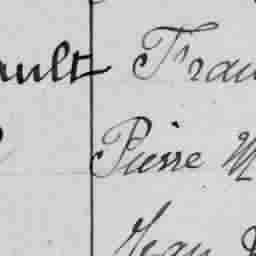 ault Frau
Pierre M
Jean